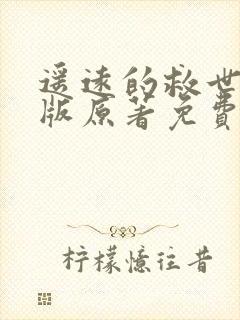 遥远的救世
版原著免费
柠檬憶往昔